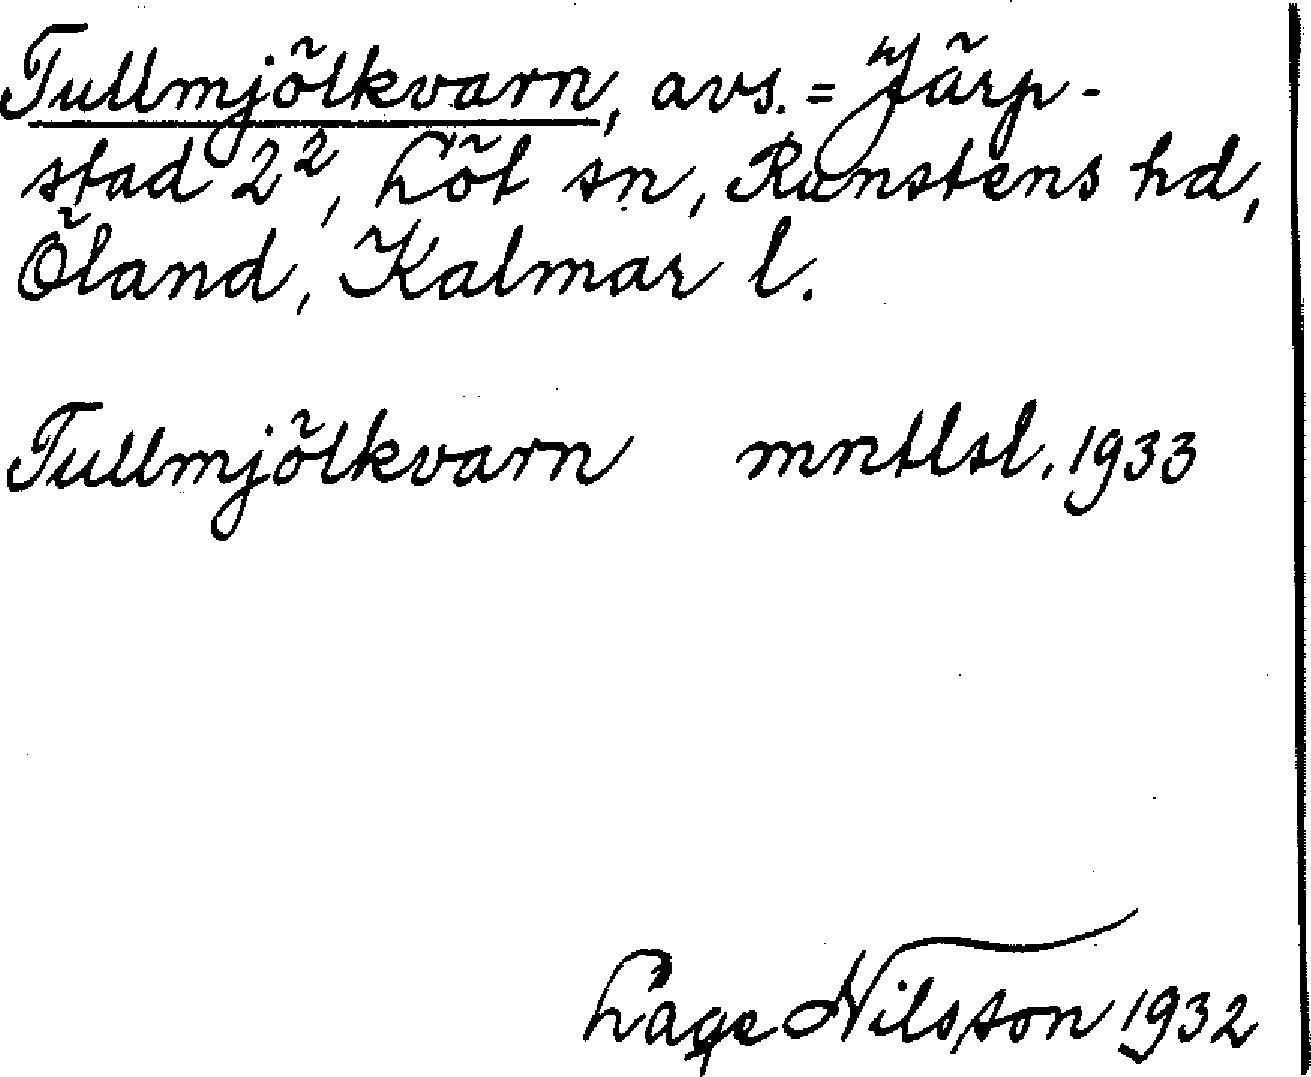 Tullmjölkvarn, avs. = Järp-
stad 2², Löt sn, Runstens hd,
Öland, Kalmar l.
Tullmjölkvarn mntlsl. 1933
Lage Nilsson 1932